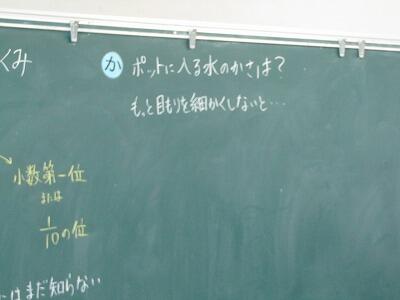 くみ
か ポットに入る水のかさは？
もっと目もりを細かくしないと…
小数第一位
または
1/10の位
はまだ知らない